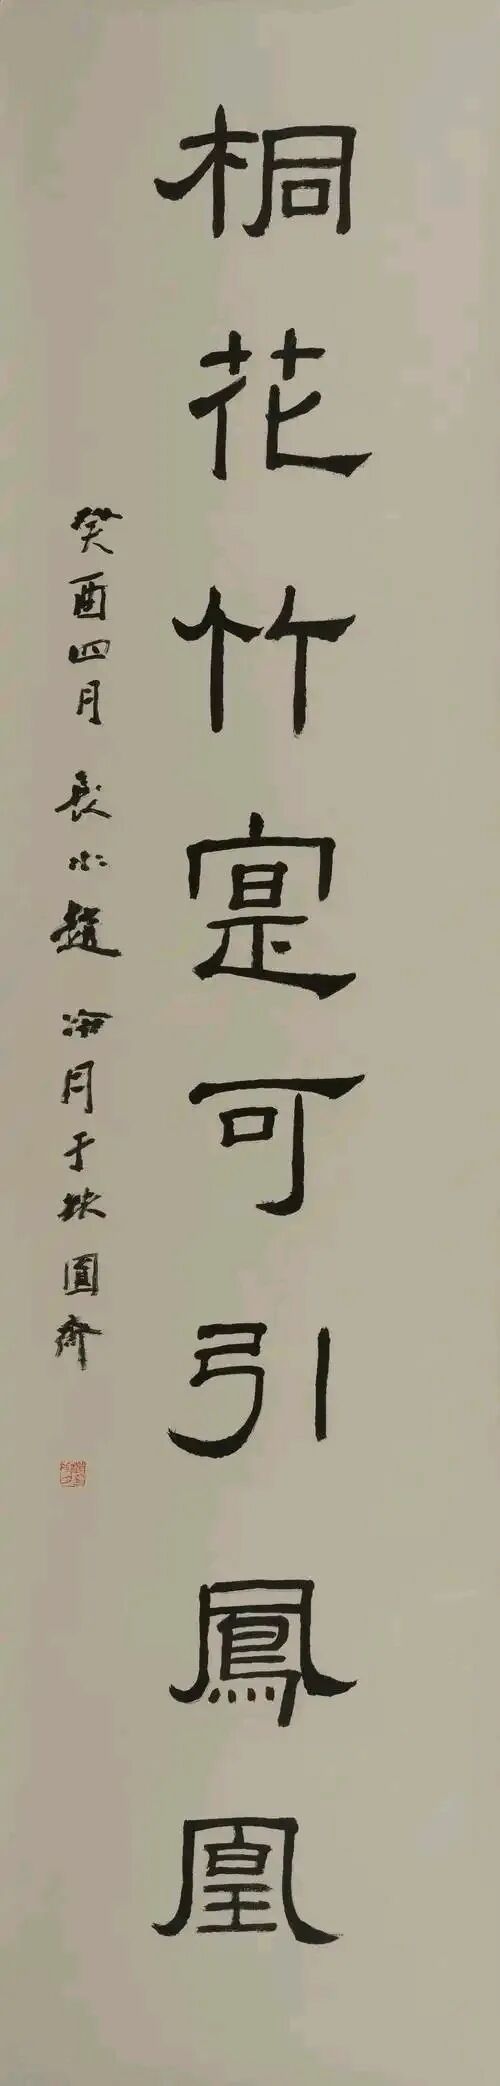 桐花竹寔可引鳳凰
癸酉四月 長水趙 冷月于缺圓齋